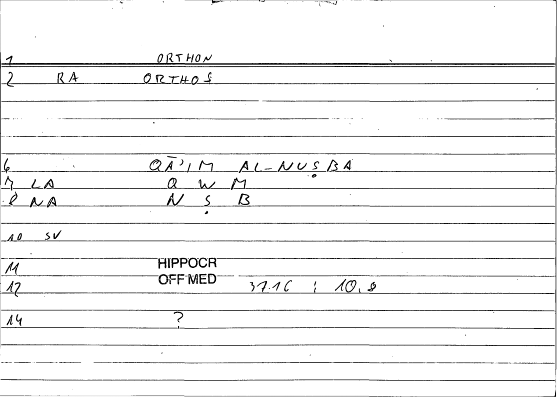 1 ORTHON
2 RA ORTHOS
6 QĀ'IM AL-NUṢBA
7 LA Q W M
8 NA N Ṣ B
10 SV
11 HIPPOCR
12 OFF MED 37.16 ; 10.
14 ?